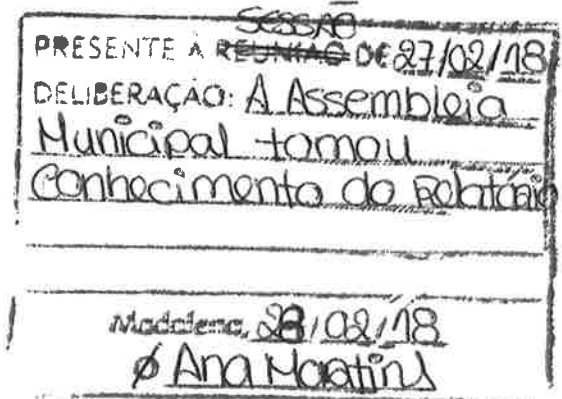 SESSÃO
PRESENTE À REUNIÃO DE 27/02/18
DELIBERAÇÃO: A Assembleia
Municipal tomou
Conhecimento do Relatório
Madalena, 28/02/18
Ana Martins